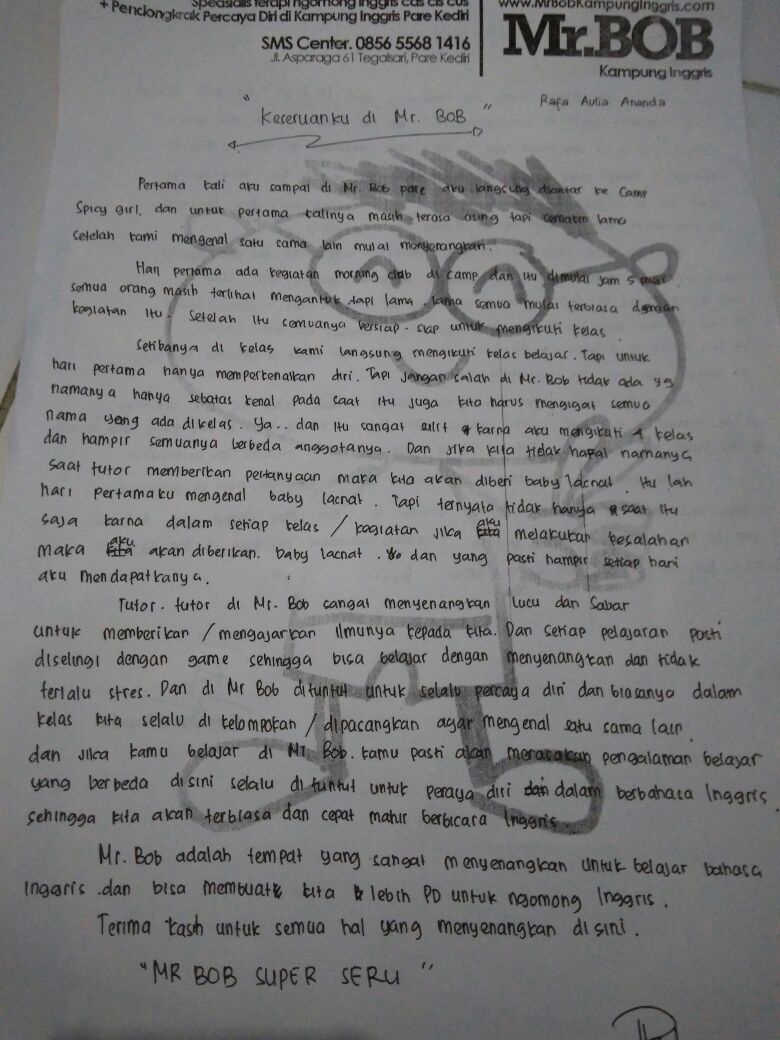 Spesialis terapi ngomong Inggris cas cis cus
+ Pendongkrak Percaya Diri di Kampung Inggris Pare Kediri
www.MrBobKampungInggris.com
SMS Center. 0856 5568 1416
Jl. Asparaga 61 Tegalsari, Pare Kediri
Mr.BOB
Kampung Inggris
Rafa Aulia Ananda
" Keseruanku di Mr. BOB "
Pertama kali aku sampai di Mr. Bob pare aku langsung diantar ke Camp
Spicy girl. dan untuk pertama kalinya masih terasa asing tapi semakin lama
setelah kami mengenal satu sama lain mulai menyenangkan.
Hari pertama ada kegiatan morning club di camp dan itu dimulai jam 5 saat
semua orang masih terlihat mengantuk tapi lama. lama semua mulai terbiasa dengan
kegiatan itu. Setelah itu semuanya bersiap-siap untuk mengikuti kelas.
Setibanya di kelas kami langsung mengikuti kelas belajar. Tapi untuk
hari pertama hanya memperkenalkan diri. Tapi jangan salah di Mr. Bob tidak ada yg
namanya hanya sebatas kenal pada saat itu juga kita harus mengigat semua
nama yang ada dikelas. Ya.. dan itu sangat sulit karna aku mengikuti 4 kelas
dan hampir semuanya berbeda anggotanya. Dan jika kita tidak hapal namanya
saat tutor memberikan pertanyaan maka kita akan diberi baby lacnat. Itu lah
hari pertamaku mengenal baby lacnat. Tapi ternyata tidak hanya saat itu
saja karna dalam setiap kelas / kegiatan jika aku melakukan kesalahan
maka aku akan diberikan. baby lacnat. dan yang pasti hampir setiap hari
aku mendapatkanya.
Tutor. tutor di Mr. Bob sangat menyenangkan lucu dan sabar
untuk memberikan / mengajarkan ilmunya kepada kita. Dan setiap pelajaran pasti
diselingi dengan game sehingga bisa belajar dengan menyenangkan dan tidak
terlalu stres. Dan di Mr Bob dituntut untuk selalu percaya diri dan biasanya dalam
kelas kita selalu di kelompokan / dipacangkan agar mengenal satu sama lain.
dan jika kamu belajar di Mr. Bob. kamu pasti akan merasakan pengalaman belajar
yang berbeda disini selalu di tuntut untuk peraya diri dalam berbahasa Inggris.
sehingga kita akan terbiasa dan cepat mahir berbicara Inggris.
Mr. Bob adalah tempat yang sangat menyenangkan untuk belajar bahasa
Inggris .dan bisa membuat kita lebih PD untuk ngomong Inggris.
Terima kash untuk semua hal yang menyenangkan disini.
"MR BOB SUPER SERU"